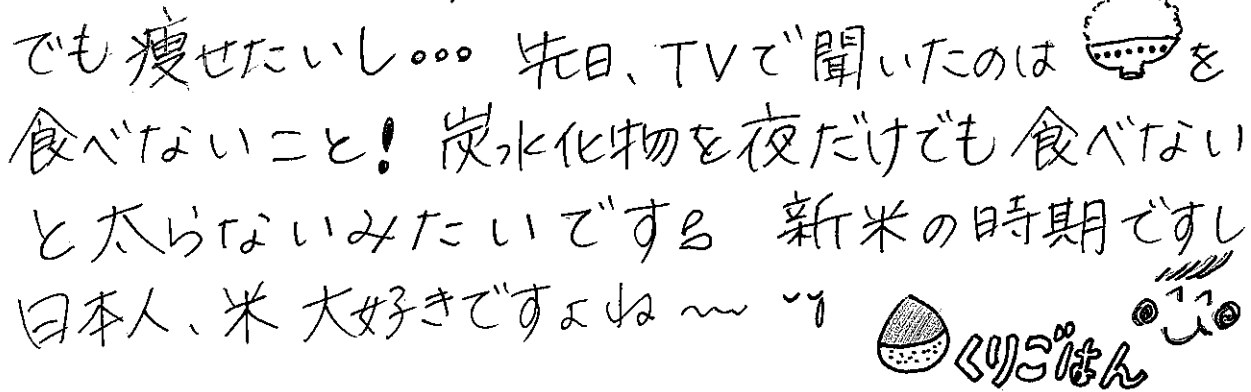 でも痩せたいし... 先日、TVで聞いたのは を
食べないこと! 炭水化物を夜だけでも食べない
と太らないみたいです。 新米の時期ですし
日本人、米大好きですよね〜
くりごはん